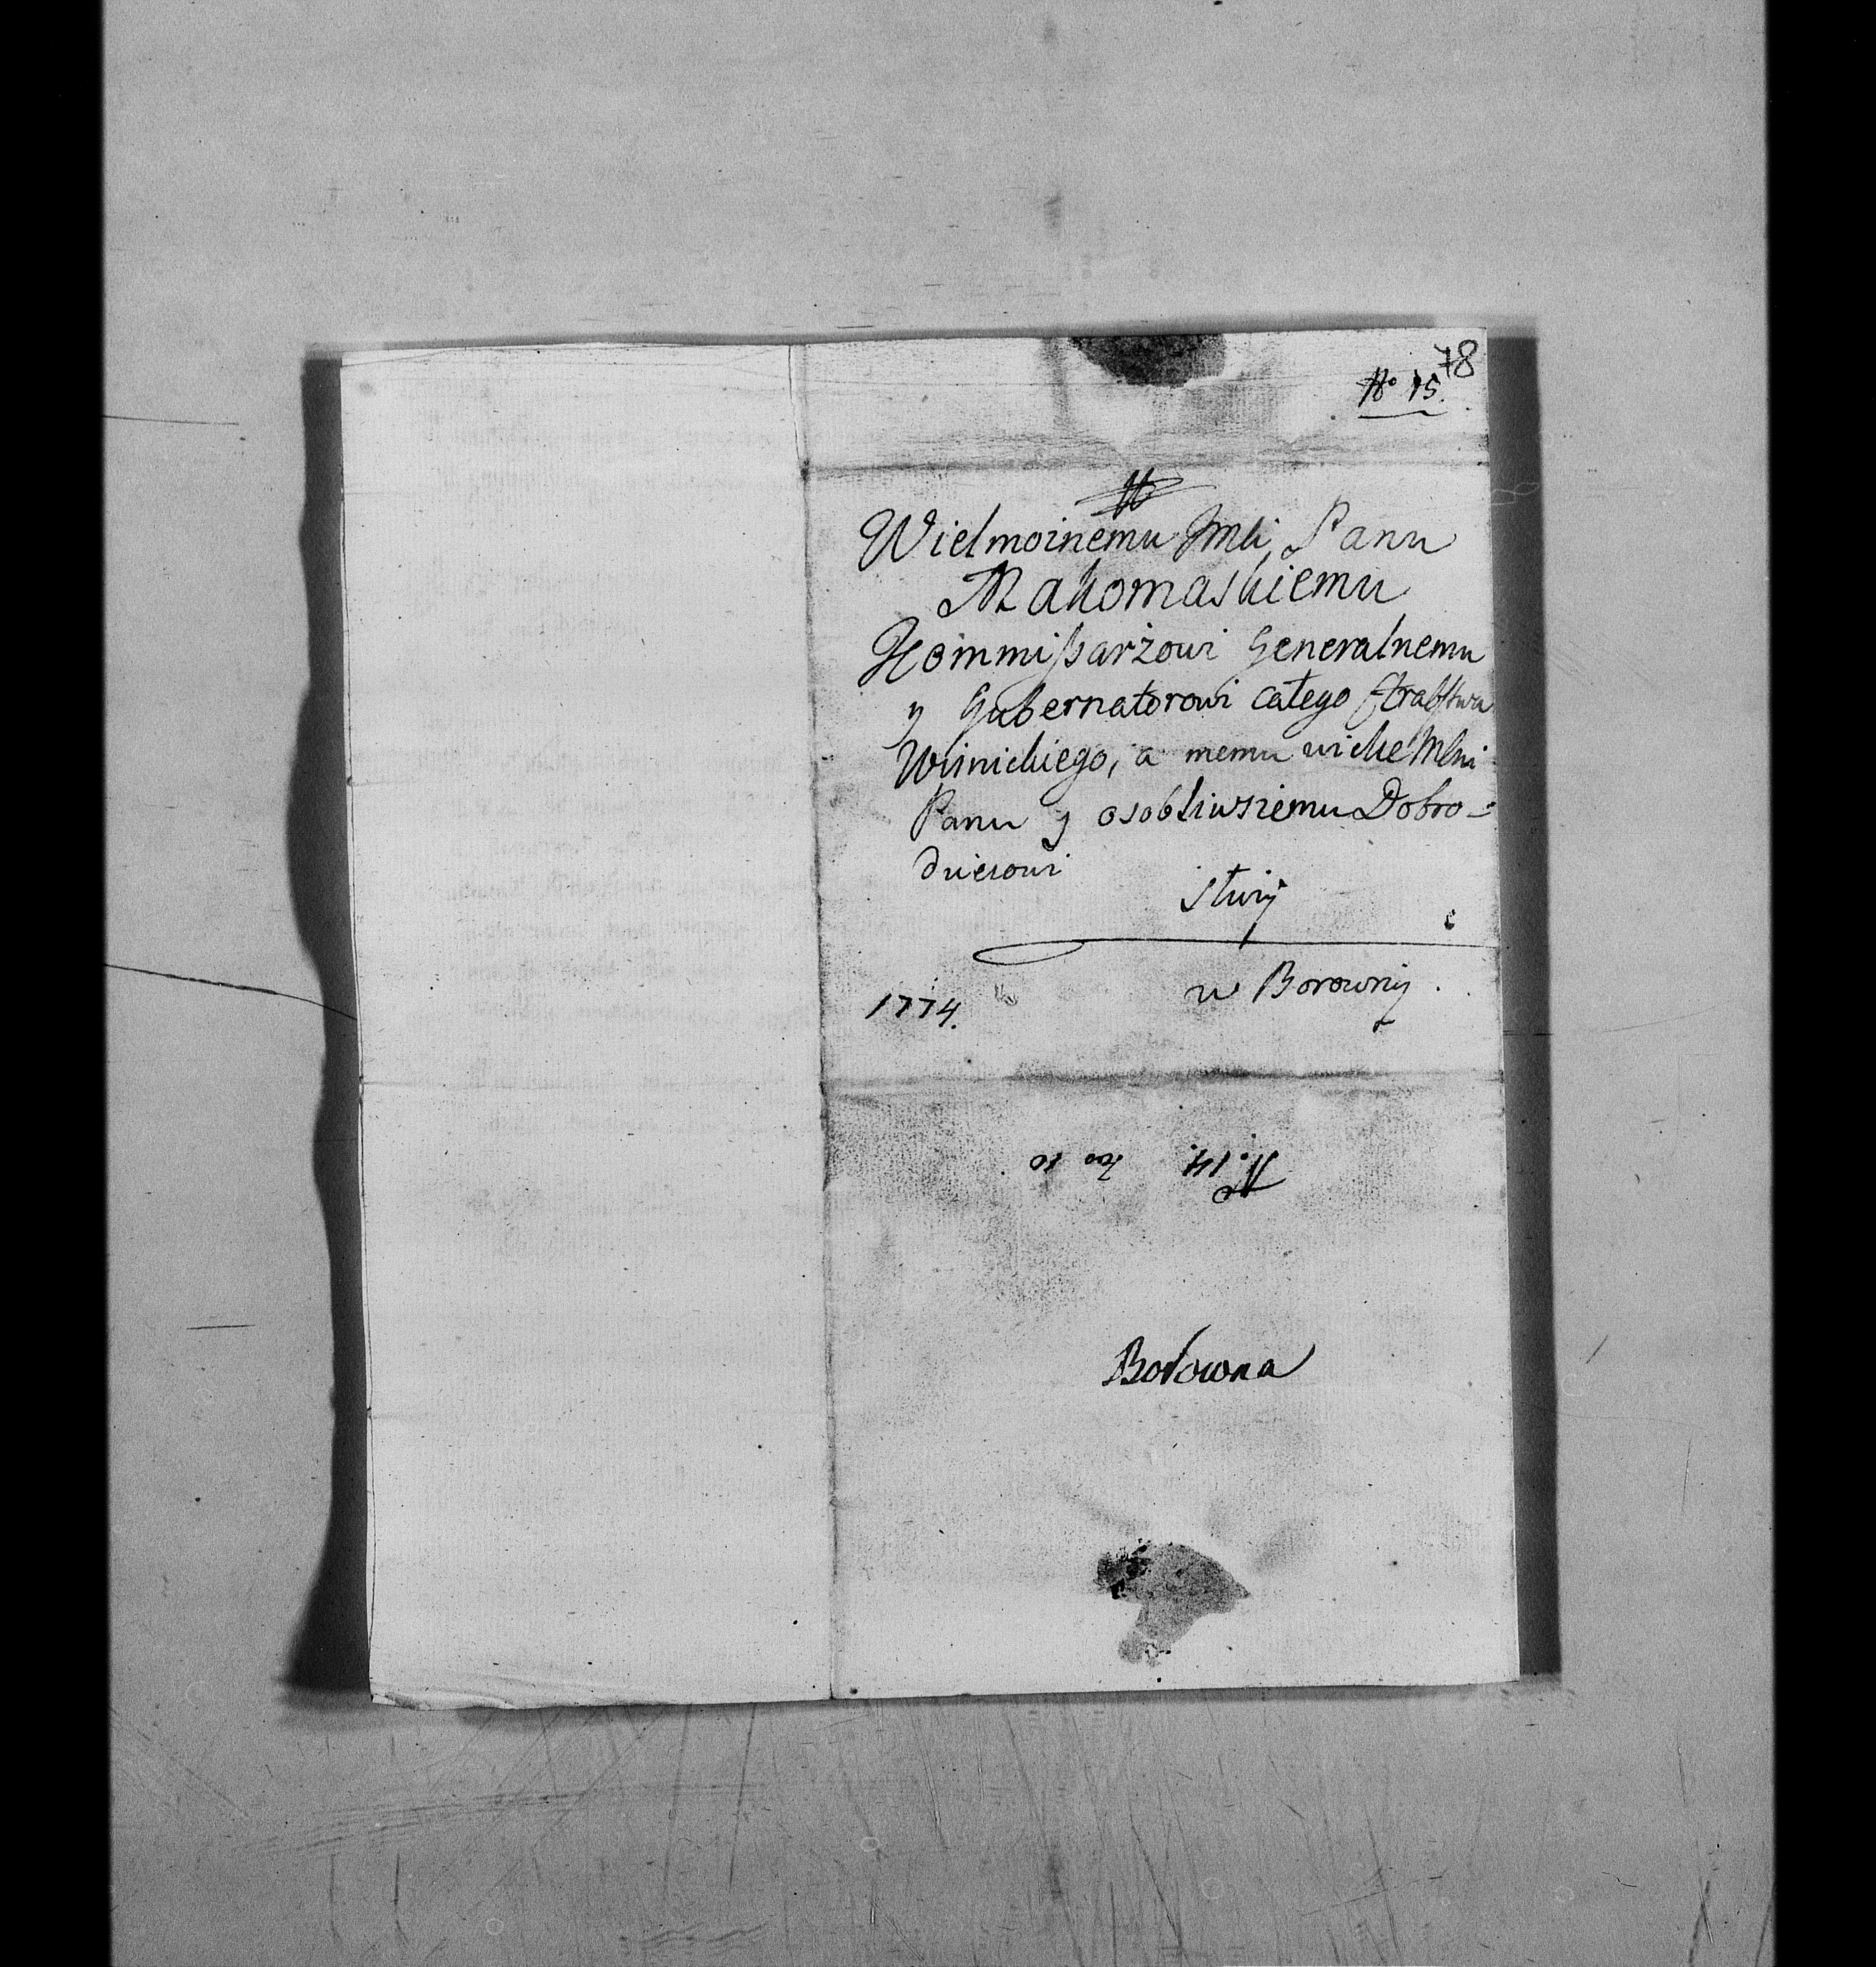 78
No 15.
Wielmoznemu Jmci Panu
Makomaskiemu
Kommissarzowi Generalnemu
y Gubernatorowi całego Hrabstwa
Wisnickiego, a memu wielce Mmu
Panu y osobliwszemu Dobro=
dziejowi
słuzy
w Borowny.
1774.
N. 14.
Borowna